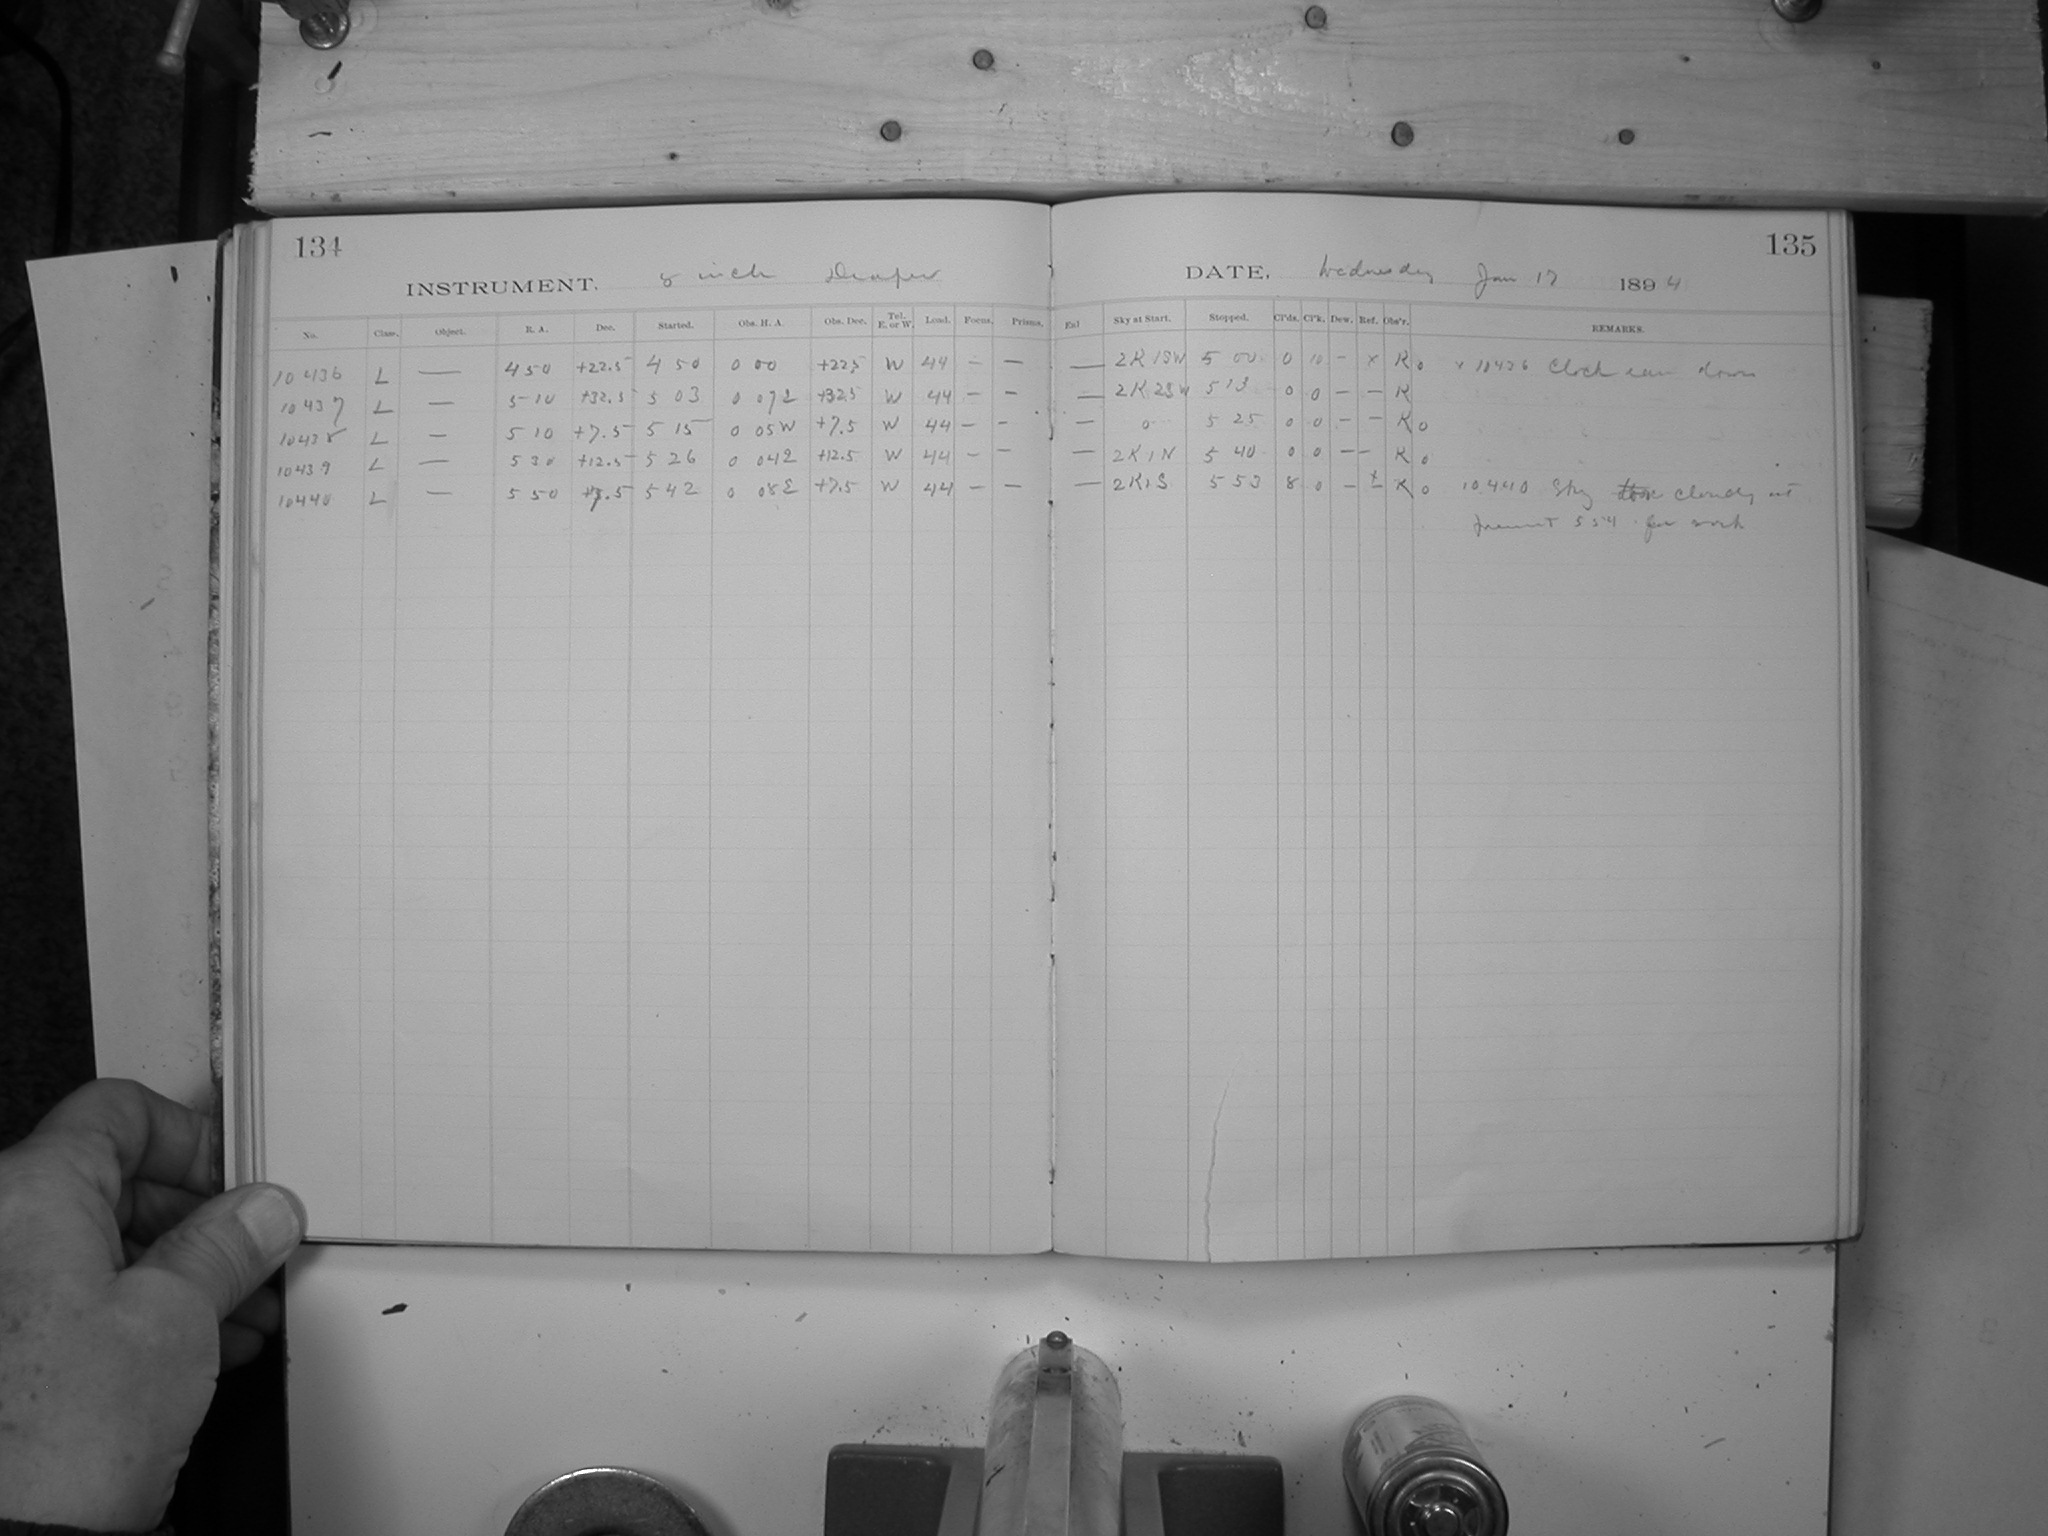 134 135
INSTRUMENT. 8 inch Draper DATE, Wednesday Jan 17 1894
No. Class. Object. R. A. Dec. Started. Obs. H. A. Obs. Dec. Tel. E. or W. Load. Focus. Prisms. Exl Sky at Start. Stopped. Cl'ds. Cl'k. Dew. Ref. Obs'r. REMARKS.
10436 L — 4 50 +22.5 4 50 0 00 +22.5 W 44 — — — 2K1SW 5 00 0 10 — x R o x 10436 Clock ran down
10437 L — 5 10 +32.5 5 03 0 07E +32.5 W 44 — — — 2K2SW 5 13 0 0 — — R
10438 L — 5 10 +7.5 5 15 0 05W +7.5 W 44 — — — 0 5 25 0 0 — — R o
10439 L — 5 30 +12.5 5 26 0 04E +12.5 W 44 — — — 2K1N 5 40 0 0 — — R o
10440 L — 5 50 +7.5 5 42 0 08E +7.5 W 44 — — — 2K1S 5 53 8 0 — R o 10440 Sky cloudy at
present 5 54 for work